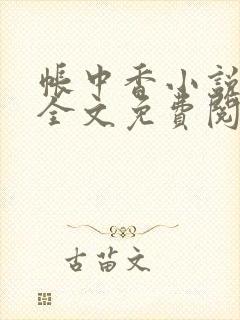 帳中香小說
全文免費閱
古苗文